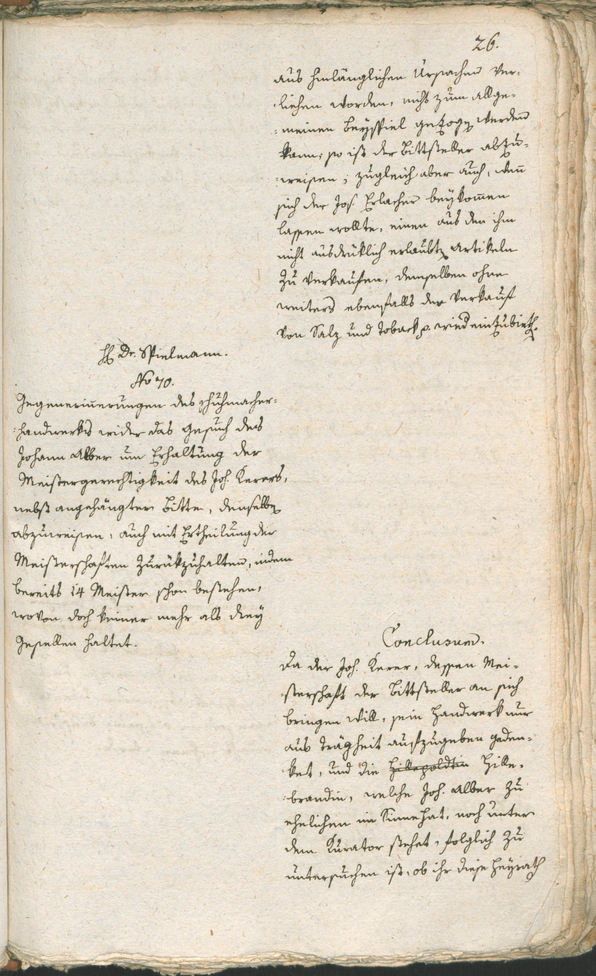 26.
aus hinlänglichen Ursachen ver-
liehen worden, nicht zum allge-
meinen Beyspiel gezogen werden
kann; so ist der Bittsteller abzu-
weisen; zugleich aber auch, wenn
sich der Jos. Erlacher beykommen
lassen wollte, einen aus den ihm
nicht ausdrüklich erlaubten Artikeln
zu verkaufen, demselben ohne
weiters ebenfalls der Verkauf
von Salz und Toback
H Dr. Spielmann.
No 70.
Gegenerinnerungen des Schuhmacher-
handwerks wider das Gesuch des
Johann Alber um Erhaltung der
Meistergerechtigkeit des Joh. Kerers,
nebst angehängter Bitte, denselben
abzuweisen, auch mit Ertheilung der
Meisterschaften zurükzuhalten, indem
bereits 14 Meister schon bestehen,
wovon doch keiner mehr als drey
Gesellen haltet.
Conclusum.
Da der Joh. Kerer, dessen Mei-
sterschaft der Bittsteller an sich
bringen will, sein Handwerk nur
aus Trägheit aufzugeben geden-
ket, und die Hilte-
brandin, welche Joh. Alber zu
ehelichen im Sinne hat, noch unter
dem Kurator stehet, folglich zu
untersuchen ist, ob ihr diese Heyrath